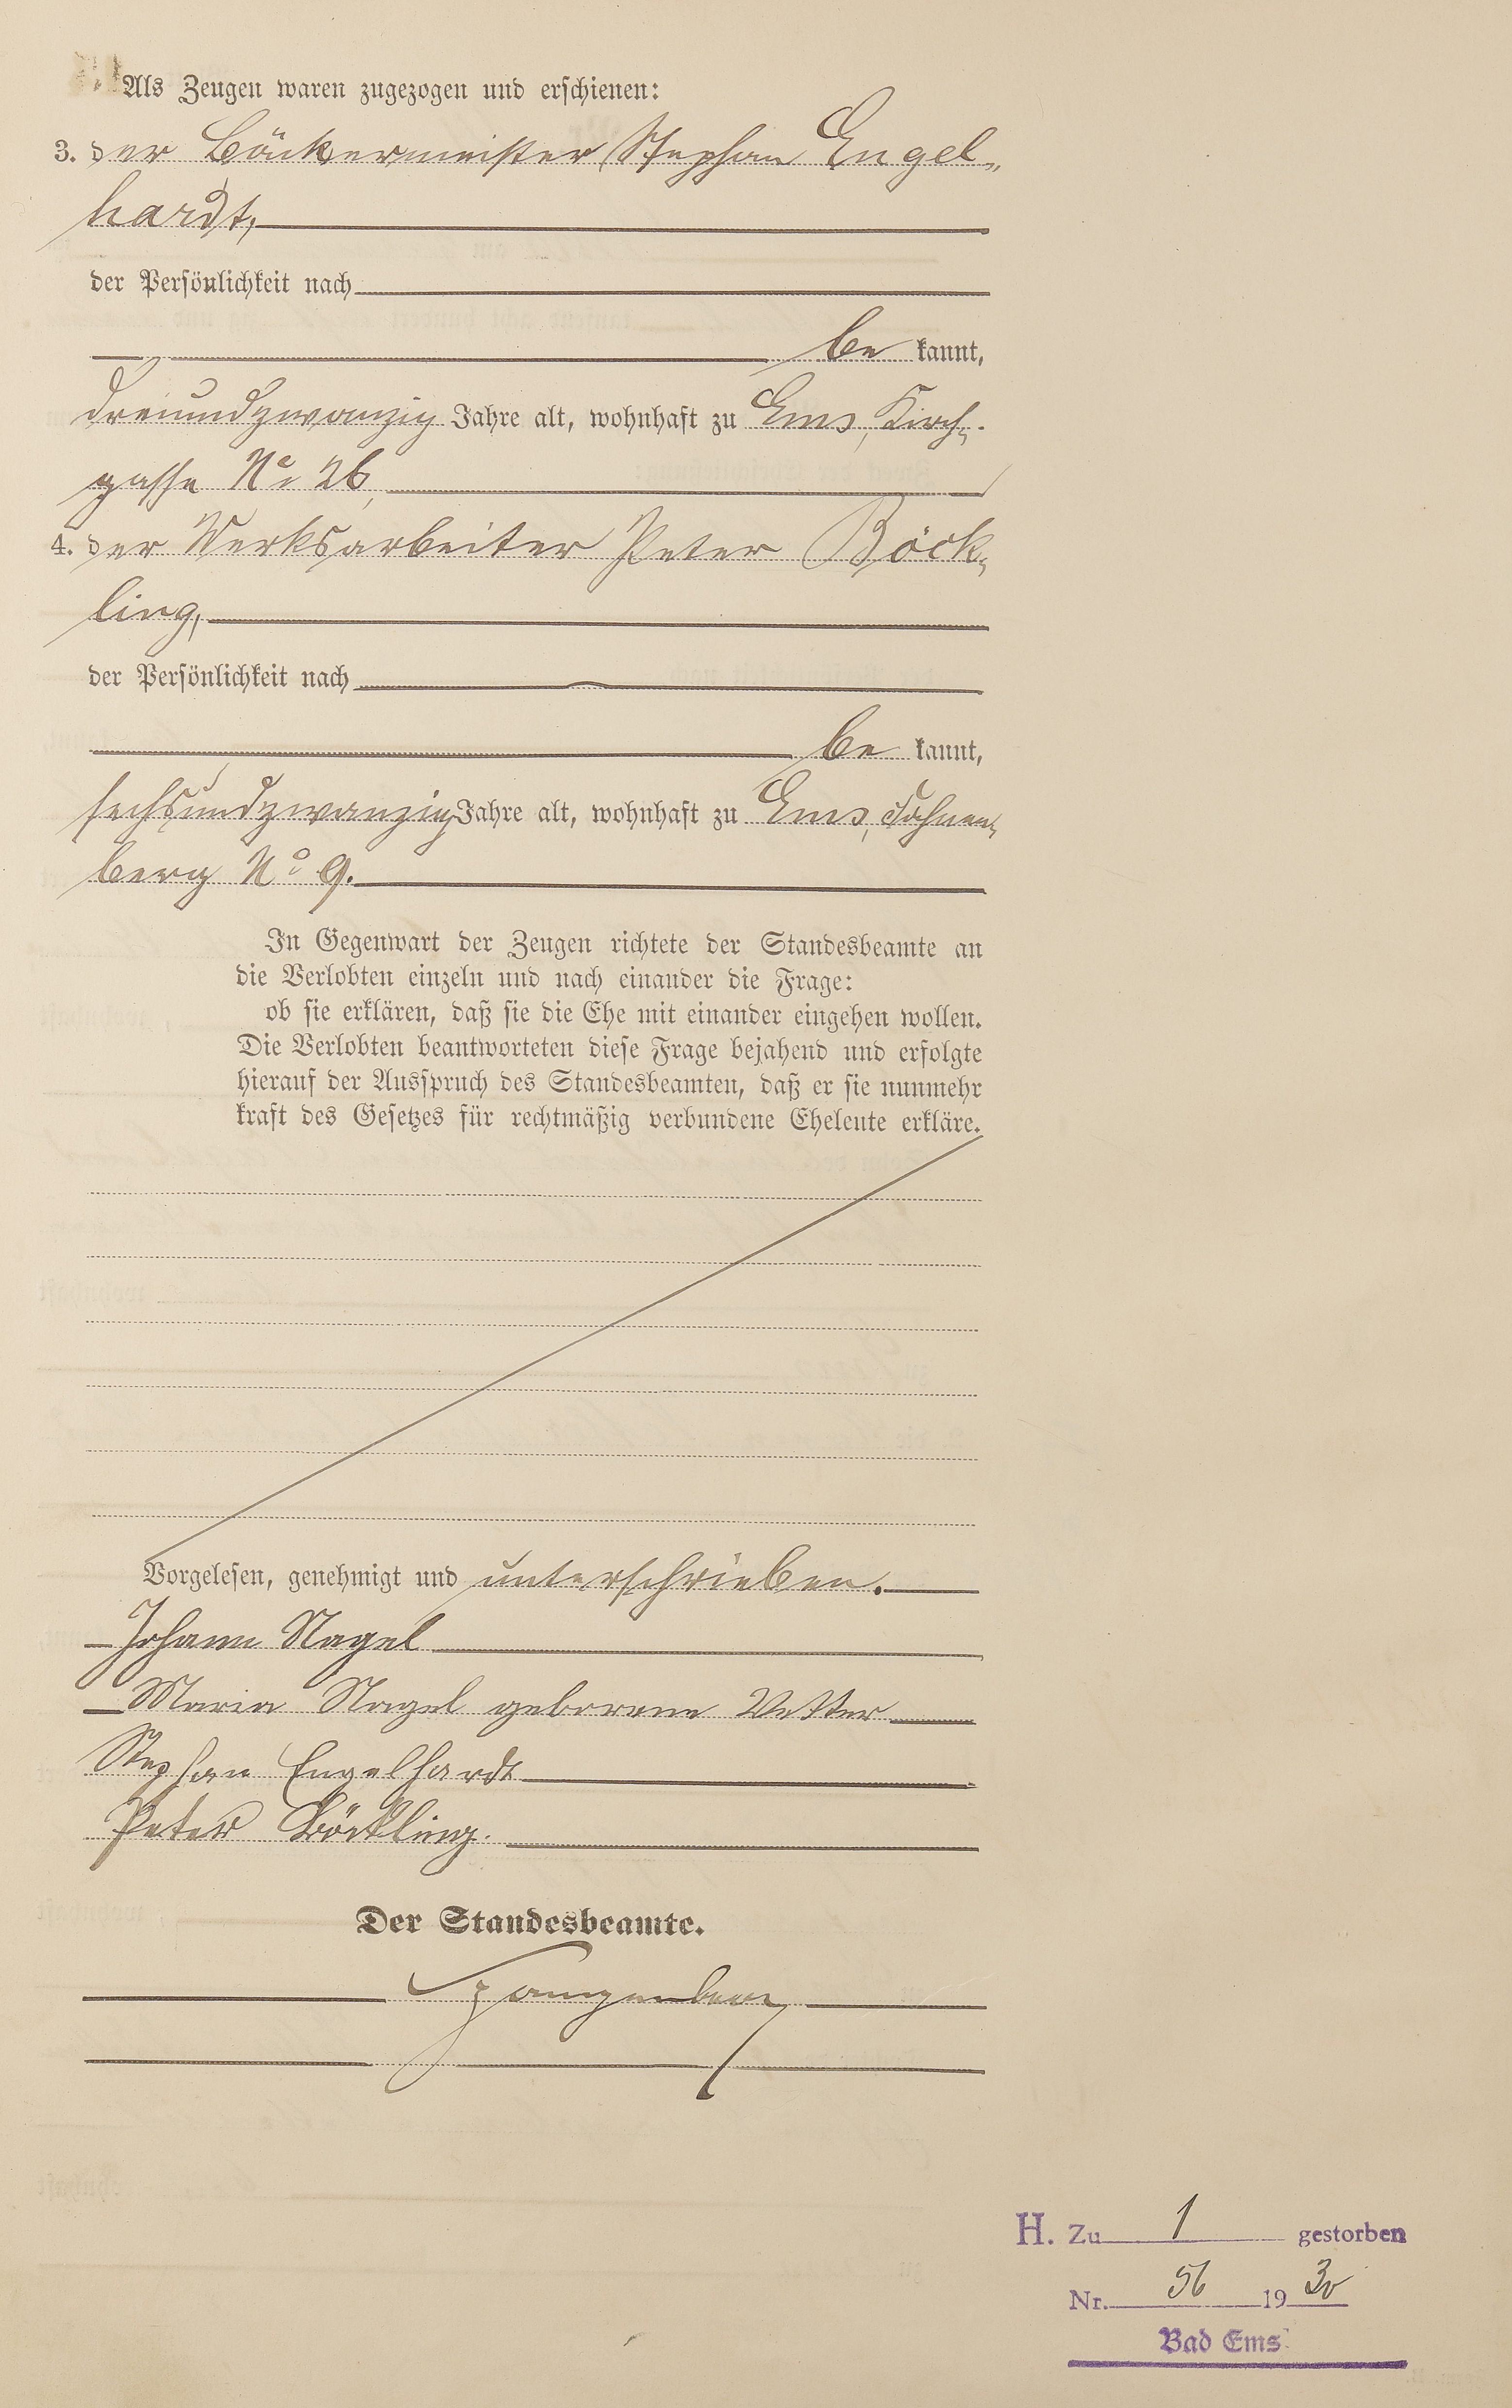 Als Zeugen waren zugezogen und erschienen:
3. der Bäckermeister Stephan Engel-
hardt,
der Persönlichkeit nach
be kannt,
dreiundzwanzig Jahre alt, wohnhaft zu Ems, Kirch-
gasse No 26,
4. der Werksarbeiter Peter Böck-
ling,
der Persönlichkeit nach
be kannt,
sechsundzwanzig Jahre alt, wohnhaft zu Ems,
berg No 9.
In Gegenwart der Zeugen richtete der Standesbeamte an
die Verlobten einzeln und nach einander die Frage:
ob sie erklären, daß sie die Ehe mit einander eingehen wollen.
Die Verlobten beantworteten diese Frage bejahend und erfolgte
hierauf der Ausspruch des Standesbeamten, daß er sie nunmehr
kraft des Gesetzes für rechtmäßig verbundene Eheleute erkläre.
Vorgelesen, genehmigt und unterschrieben.
Johann Nagel
Maria Nagel geborene Vetter
Stephan Engelhardt
Peter Böckling.
Der Standesbeamte.
H. Zu 1 gestorben
Nr. 56 1930
Bad Ems